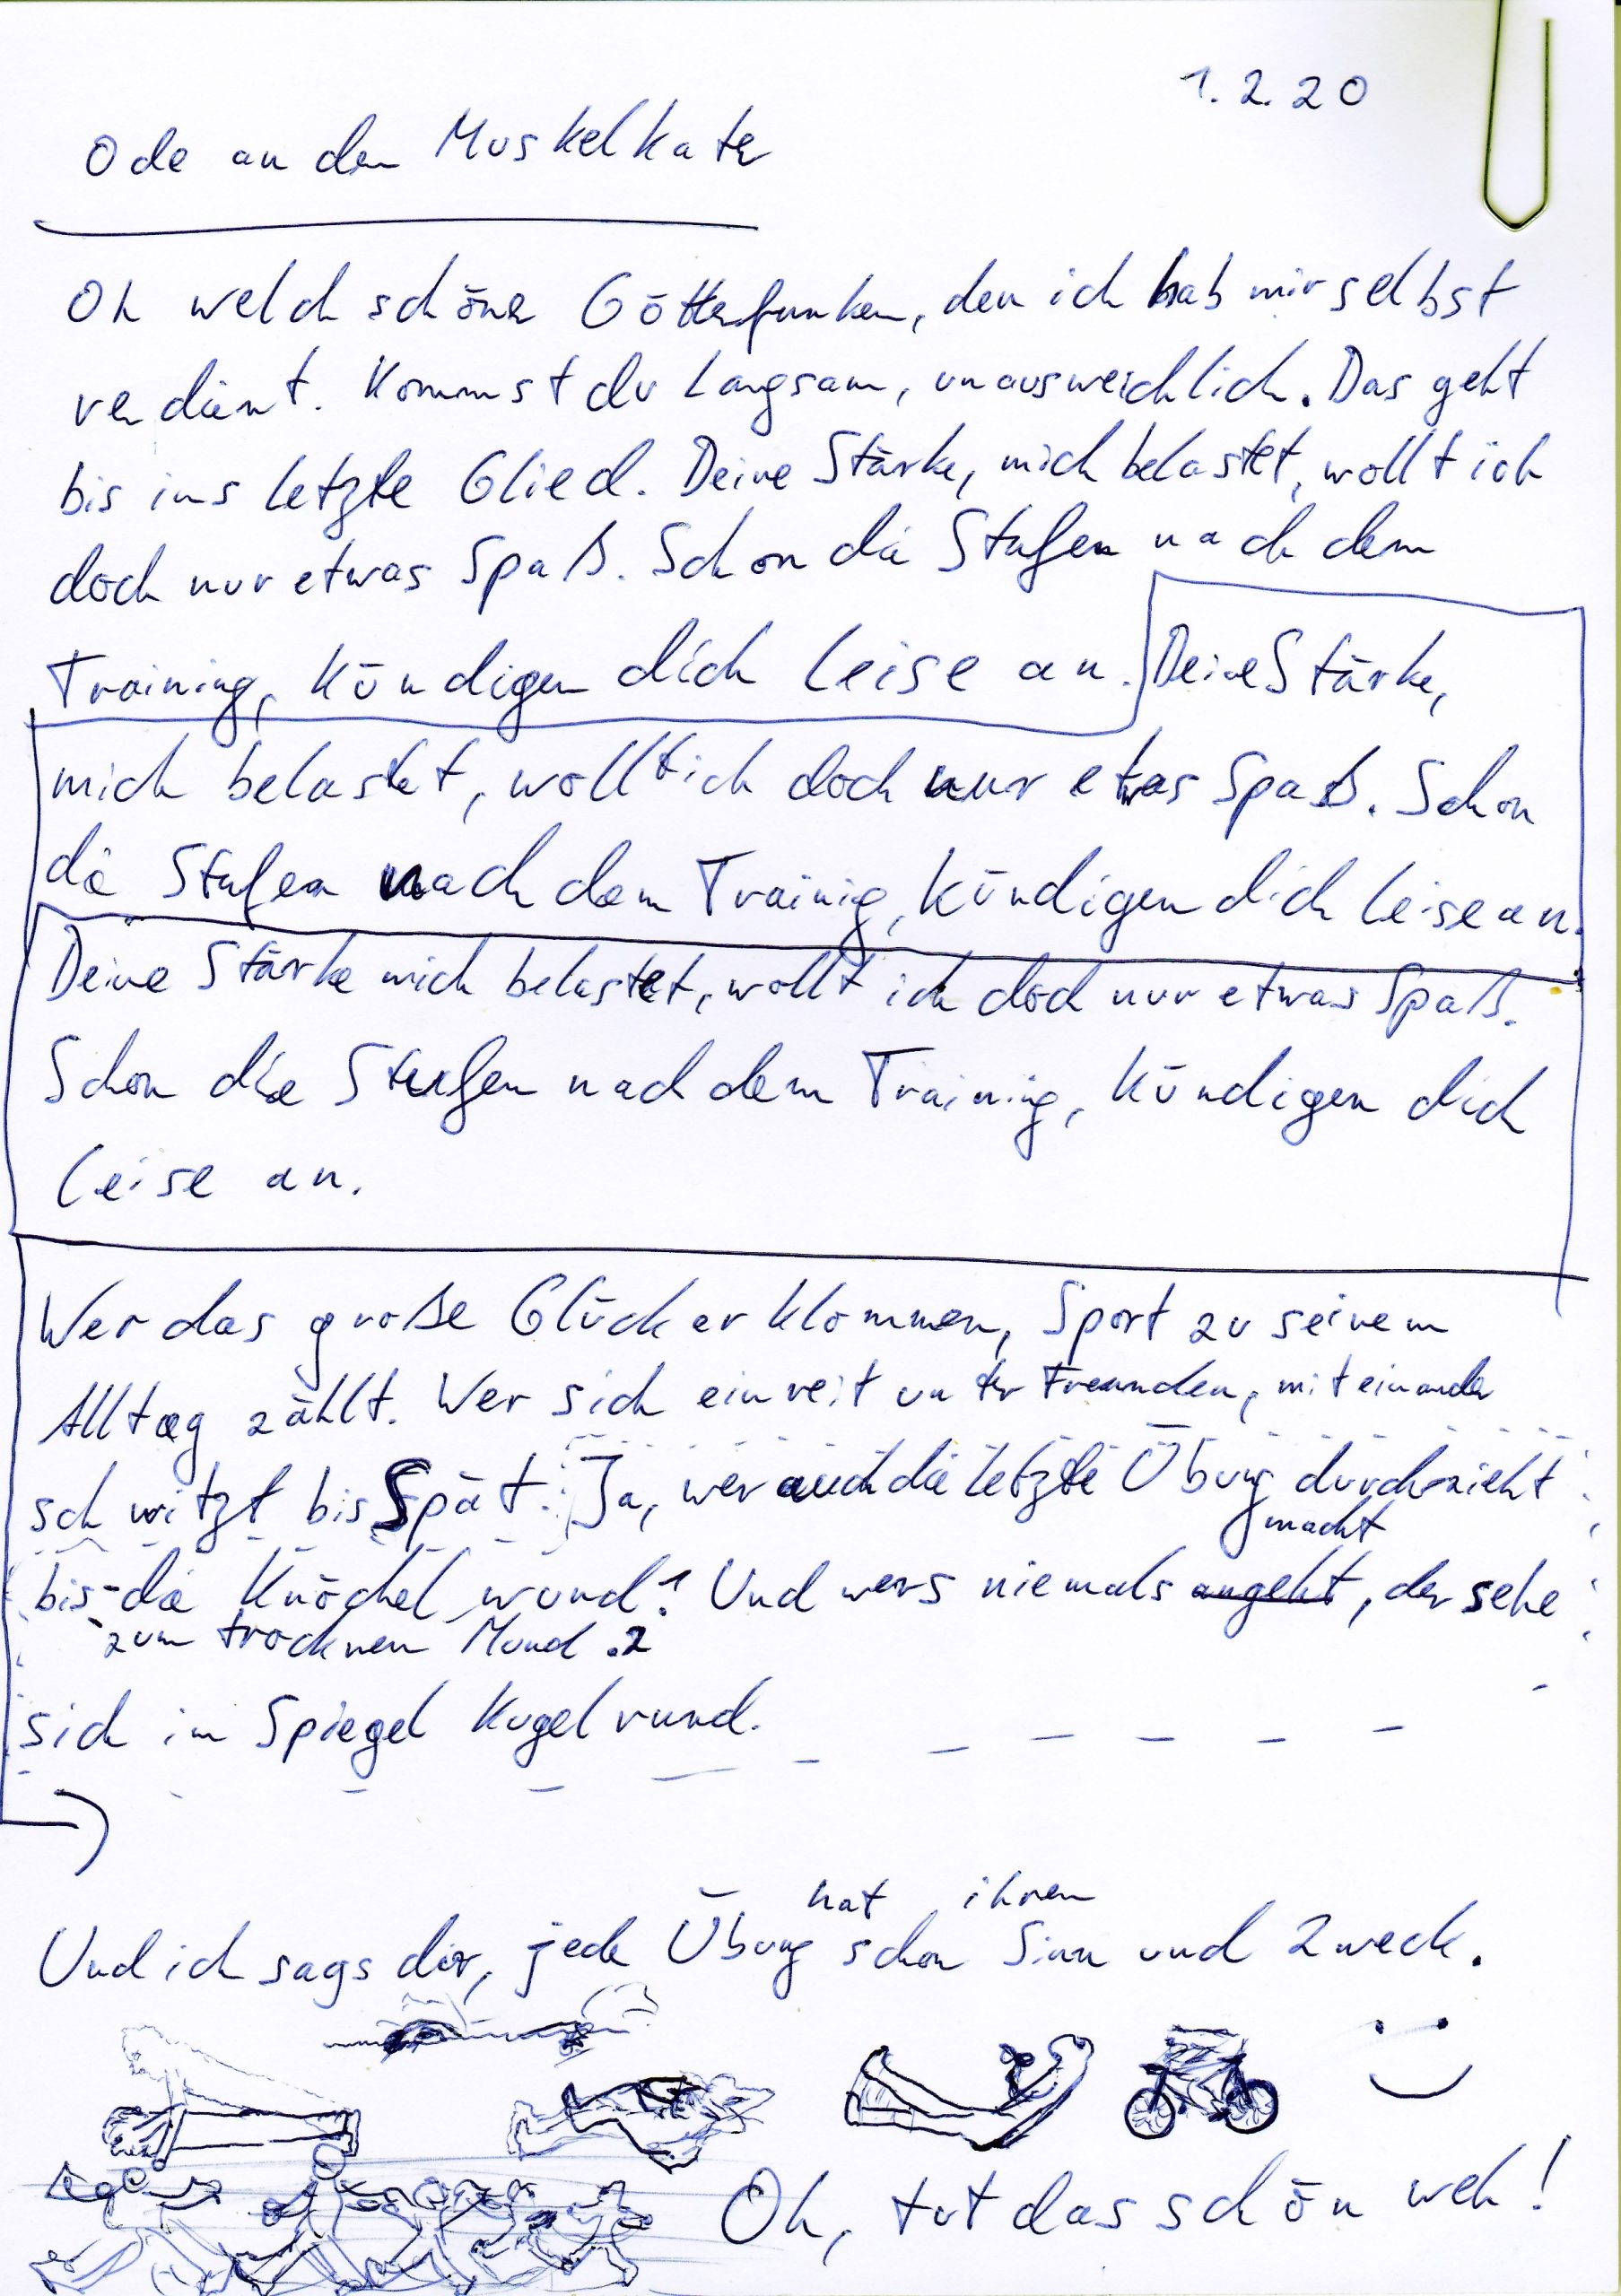 1.2.20
Ode an den Muskelkater
Oh welch schöner Götterfunken, den ich hab mir selbst
verdient. Kommst du langsam, unausweichlich. Das geht
bis ins letzte Glied. Deine Stärke, mich belastet, wollt ich
doch nur etwas Spaß. Schon die Stufen nach dem
Training, kündigen dich leise an. Deine Stärke,
mich belastet, wollt ich doch nur etwas Spaß. Schon
die Stufen nach dem Trainig, kündigen dich leise an.
Deine Stärke mich belastet, wollt ich doch nur etwas Spaß.
Schon die Stufen nach dem Training, kündigen dich
leise an.
Wer das große Glück erklommen, Sport zu seinem
Alltag zählt. Wer sich einreit unter Freunden, miteinander
schwitzt bis Spät. Ja, wer auch die letzte Übung durchzieht
macht
bis die Knöchel wund.1 Und wers niemals angeht, der sehe
zum trocknen Mund.2
sich im Spiegel Kugelrund.
hat ihren
Und ich sags dir, jede Übung schon Sinn und Zweck.
Oh, tut das schön weh!